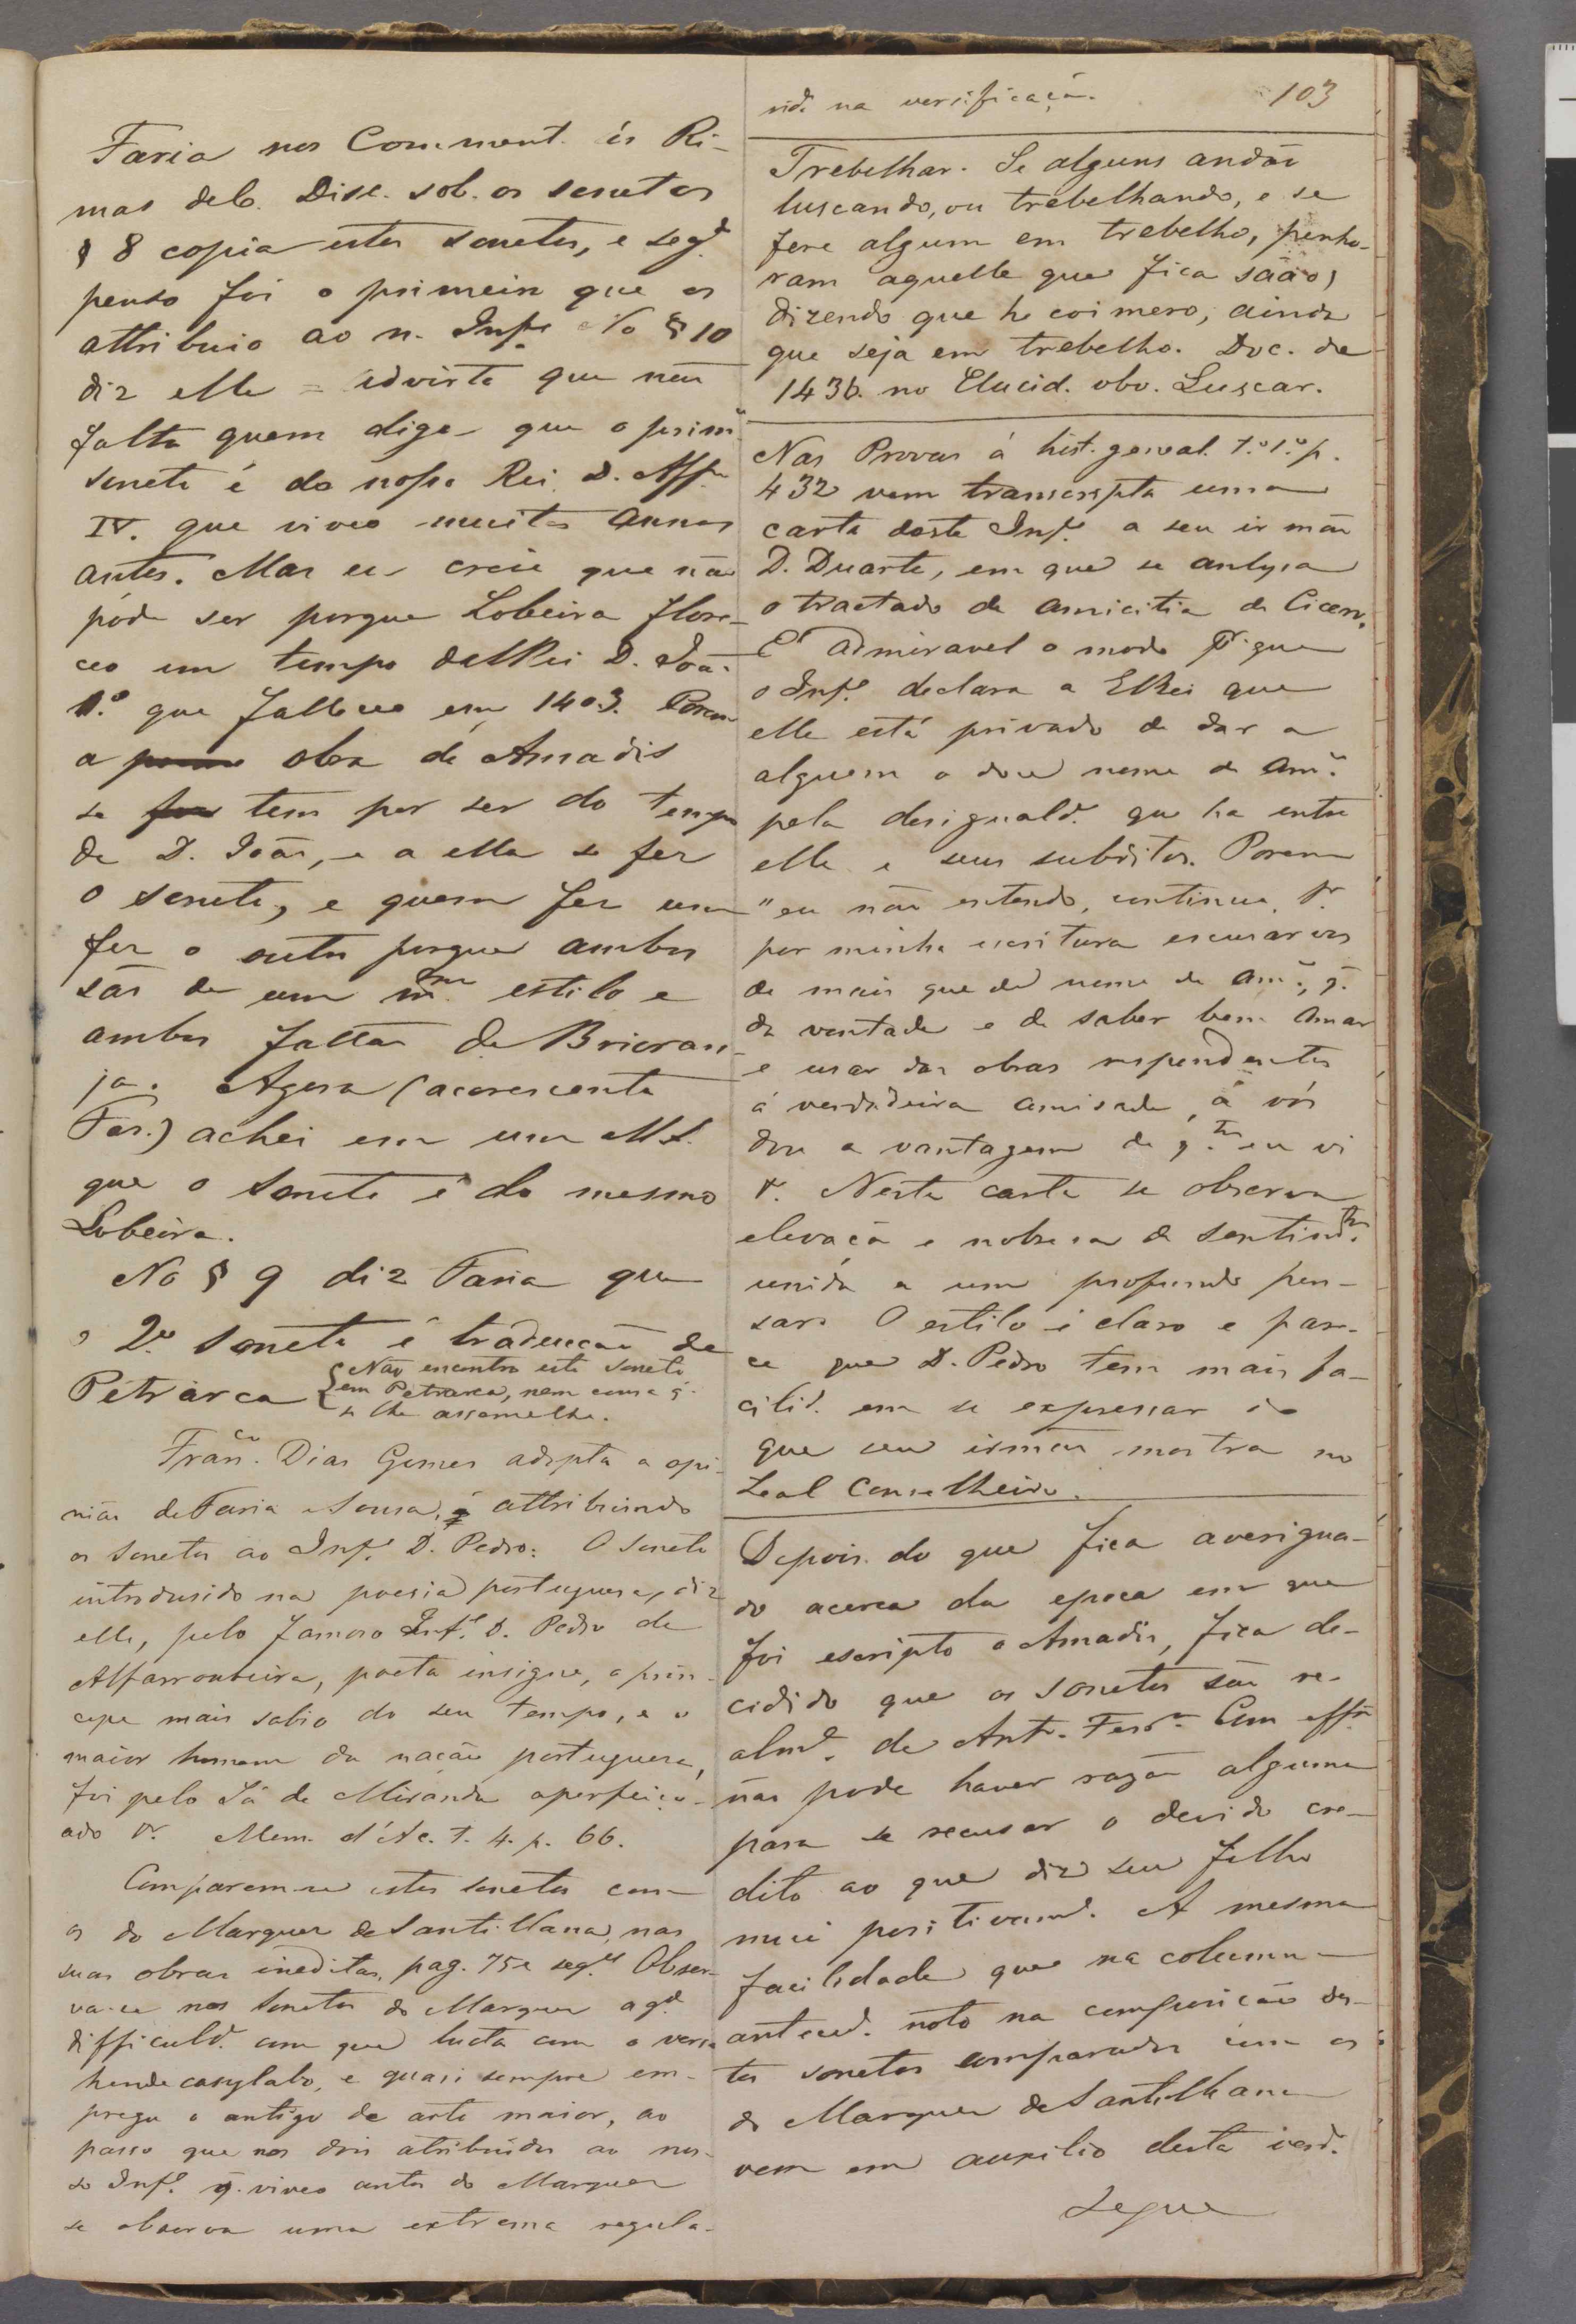 Faria nos Comment. ás Ri-
mas deb. Disc. sob. os sonetos
§ 8 copia estes sonetos, e segd.
penso foi o primeiro que os
attribuio ao n. Infe. No § 10
diz elle = advirta que não
falta quem diga que o primº
soneto é do nosso Rei D. Affº
IV. que viveo muitos annos
antes. Mas eu creio que não
póde ser porque Lobeira flore-
ceo em tempo delRei D. João
1.º que falleceo em 1403. Porem
a obra de Amadis
se tem por ser do tempo
de D. João, e a ella se fez
o soneto, e quem fez um
fez o outro porque ambos
são de um mmo estilo e
ambos fallão de Brioran-
ja. Agora (acrescenta
Far.) achei em um MS.
que o soneto é do mesmo
Lobeira.
No § 9 diz Faria que
o 2º soneto é traducção de
Petrarca {Não encontro este soneto
em Petrarca, nem cousa q.
se lhe assemelhe.
Francº. Dias Gomes adopta a opi-
nião de Faria e Sousa, attribuindo
os sonetos ao Infe. D. Pedro: O soneto
introdusido na poesia portuguesa, diz
elle, pelo famoso Infe. D. Pedro de
Alfarroubeira, poeta insigne, o prin-
cepe mais sabio do seu tempo, e o
maior homem da nação portuguesa,
foi pelo Sá de Miranda aperfeiço-
ado &. Mem. d'Ac. t. 4. p. 66.
Comparem-se estes sonetos com
os do Marquez de Santillana, nas
suas obras ineditas, pag. 75 e segtes Obser-
va-se nos sonetos do Marquez a gde
difficuld. com que lucta com o verso
hendecasylabo, e quasi sempre em-
prega o antigo de arte maior, ao
passo que nos dois atribuidos ao nos-
so Infe. q. viveo antes do Marquez
se observa uma extrema regula-
rid. na versificação.
103
Trebelhar. Se alguns andão
luscando, ou trebelhando, e se
fere algum em trebelho, penho-
ram aquelle que fica sãao,
dizendo que he coimero, ainda
que seja em trebelho. Doc. de
1436. no Elucid. vbo. Luscar.
Nas Provas á hist. geneal. t.º 1.º p.
432 vem transcripta uma
carta deste Infe. a seu irmão
D. Duarte, em que se anlysa
o tractado de amicitia de Cicero.
É admiravel o modo pr. que
o Infe. declara a ElRei que
elle está privado de dar a
alguem o doce nome de am.º
pela desiguald. que ha entre
elle e seus subditos. Porem
"eu não entendo, continua,
por minha escritura escusarvos
de mais que do nome de am.º, q.
da vontade e de saber bem amar
e usar das obras respondentes
á verdadeira amisade, a vós
dou a vantagem de q.tos eu vi
&. Nesta carta se observa
elevação e nobresa de sentimtos.
unida a um profundo pen-
sar. O estilo é claro e pare-
ce que D. Pedro tem mais fa-
cilid. em se expressar do
que seu irmão mostra no
Leal Conselheiro.
Depois do que fica averigua-
do acerca da epoca em que
foi escripto o Amadis, fica de-
cidido que os sonetos são re-
almte. de Antº. Ferrª. Com effto
não pode haver razão alguma
para se recusar o devido cre-
dito ao que diz seu filho
mui positivamte. A mesma
facilidade que na columna
anteced. noto na composição des-
tes sonetos comparados com os
do Marquez de Santilhana
vem em auxilio desta verd.
Segue